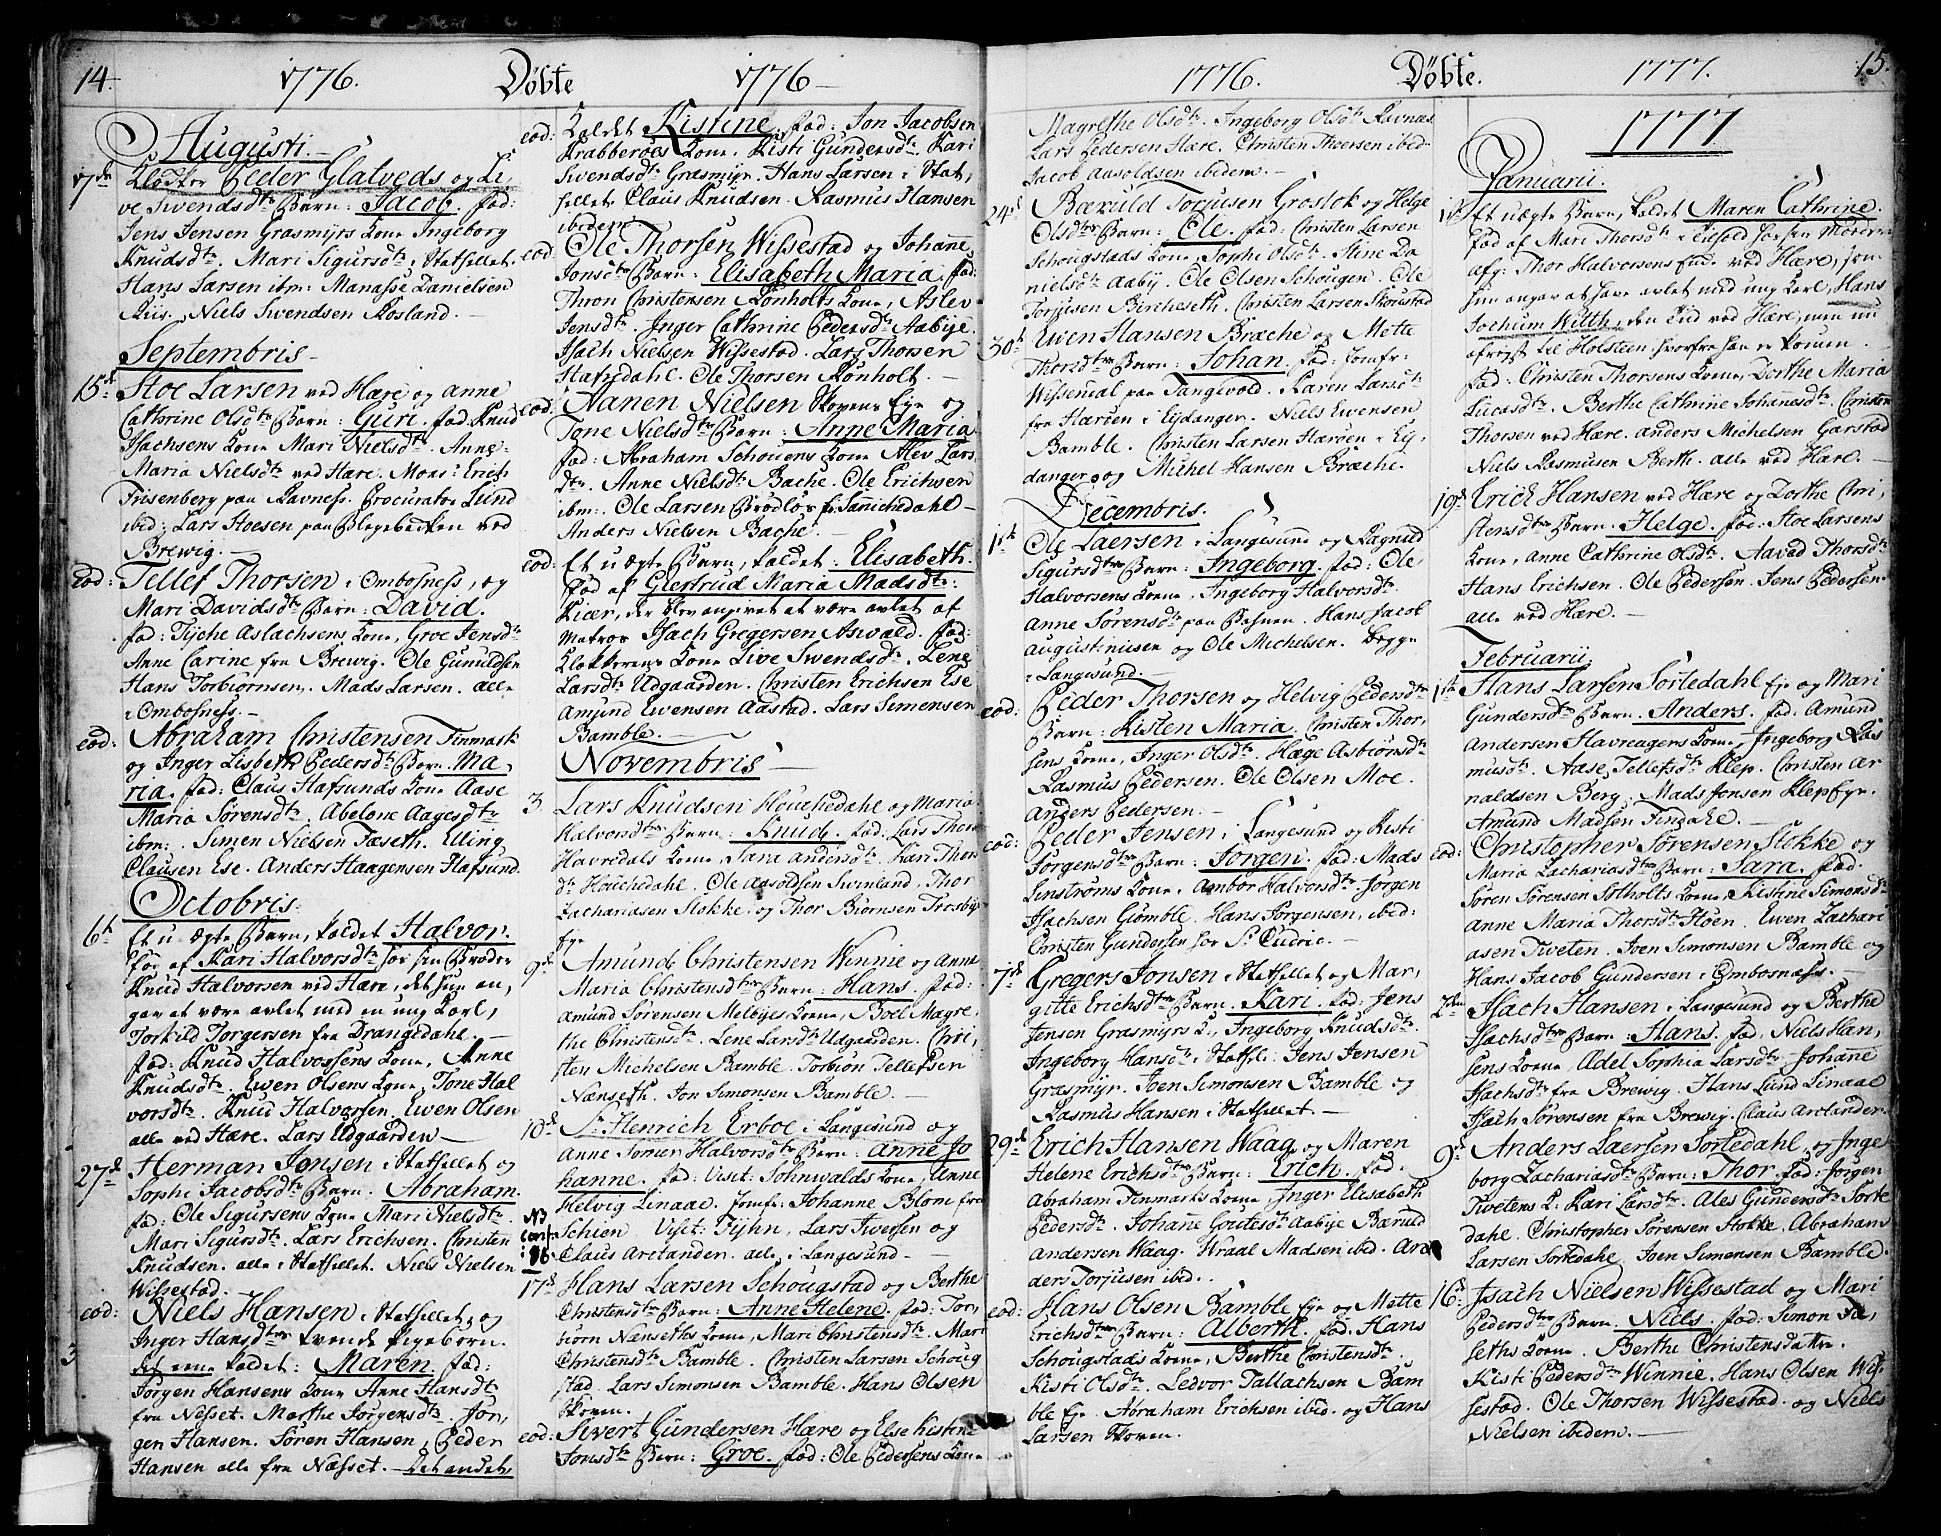 14. 1776. Döbte 1776
Augusti.
17de Klocker Peder Glatveds og Li,
ve Svendsdtr Barn: Jacob. fad:
Jens Jensen Grasmyrs Kone Ingeborg
Knudsdtr. Mari Sigursdtr i Stathellet.
Hans Larsen ibm: Manasse Danielsen
Riis. Niels Svendsen Rosland.
Septembris
15de Stoe Larsen ved Hære og Anne
Cathrine Olsdtr Barn: Guri. fad Knud
Isachsens Kone Mari Nielsdtr. Anne
Maria Nielsdtr ved Hære. Monsr Erich
Frisenberg paa Ravness. Procurator Lund
ibid: Lars Stoesen paa Blegebacken ved
Brewig.
eod: Tellef Thorsen i Ombosness, og
Mari Davidsdtr Barn: David.
fad: Tyche Aslachsens Kone, Groe Jensdtr
Anne Carine fra Brewig. Ole Gunuldsen
Hans Torbiörnsen. Mads Larsen. alle
i Ombosness.
eod: Abraham Christensen Finmark
og Inger Lisbeth Pedersdtr Barn Ma,
ria. fad: Claus Hafsunds Kone Aase
Maria Sörensdtr. Abelone Aagesdtr
ibm: Simen Nielsen Tæseth. Elling
Clausen Ese. Anders Haagensen Hafsund.
Octobris.
6te Et u-ægte Barn, kaldet Halvor.
för af Kari Halvorsdtr hos sin Broder
Knud Halvorsen ved Hære, det hun an,
gav at være avlet med en ung Karl,
Torkild Torgersen fra Drangedahl.
fad: Knud Halvorsens Kone, Anne
Knudsdtr. Ewen Olsens Kone, Tone Hal
vorsdtr. Knud Halvorsen. Ewen Olsen
alle ved Hære. Lars Udgaarden
27de Herman Jonsen i Stathellet og
Sophi Jacobsdtr Barn. Abraham.
fad: Ole Sigursens Kone Mari Nielsdtr.
Mari Sigursdtr. Lars Erichsen. Christen
Knudsen. alle i Stathellet. Niels Nielsen
Wissestad.
eod: Niels Hansen i Stathellet, og
Inger Hansdtr tvende Pigebörn.
Det eene kaldet: Maren. fad:
Jörgen Hansens Kone Anne Hansdtr
fra Næsset. Marthe Jörgensdtr. Jör,
gen Hansen. Sören Hansen, Peder
Hansen alle fra Næsset. Det andet,
eod: Kaldet Kistine. fad: Jon Jacobsen
Krabberöes Kone. Kisti Gundersdtr. Kari
Svendsdtr Grasmyr. Hans Larsen i Stat,
hellet Claus Knudsen. Rasmus Hansen
ibidem
eod: Ole Thorsen Wissestad og Johanne
Jonsdtr Barn: Elisabeth Maria. fad:
Thron Christensen Rönholts Kone, Aslev
Jensdtr. Inger Cathrine Pedersdtr Aabye.
Isach Nielsen Wissestad. Lars Thorsen
Stafsdahl. Ole Thorsen Rönholt.
eod: Nanen Nielsen Skovens Eje og
Tone Nielsdtr Barn: Anne Maria
fad: Abraham Schovens Kone Alev Lars
dtr. Anne Nielsdtr Bache. Ole Erichsen
ibm: Ole Larsen Brödlös fr: Sanichedahl
Anders Nielsen Bache.
eod: Et u ægte Barn, kaldet: Elisabeth.
fød af Giertrud Maria Madsdtr:
Kiær, der blev angivet at være avlet af
Matros Isach Gregersen Aswald. fad:
Klokkerens Kone Live Swendsdtr. Lene
Larsdtr Udgaarden. Christen Erichsen Ese
Amund Ewensen Aastad. Lars Simensen
Bamble.
Novembris
3. Lars Knudsen Houchedahl og Maria
Halvorsdtr Barn: Knud. fad: Lars Thors
Havredals Kone, Sara Andersdtr. Kari Thors
dtr Houchedahl. Ole Aasoldsen Swinland. Thor
Zachariasen Stokke. og Thor Biörnsen Trosbye
Eje
9de Amund Christensen Winnie og Anne
Maria Christensdtr Barn: Hans. fad:
Amund Sörensen Melbyes Kone, Boel Magre,
the Christensdtr. Lene Larsdtr Udgaarden. Chri,
sten Michelsen Bamble. Torbiön Tellefsen
Nænseth. Jon Simonsen Bamble.
10de Sr Henrich Erboe i Langesund og
Anne Somer Halvorsdtr Barn: Anne Jo
hanne. fad: Visit: Sohnwalds Kone, Anne
Helvig Linaae. Jomfr: Johanne Blom fra
NB Schien. Visit: Fyhn, Lars Iwersen og
conf: i 96 Claus Arctander. alle i Langesund
17de Hans Larsen Schougstad og Berthe
Christensdtr Barn: Anne Helene. fad: Tor,
biörn Nænseths Kone, Mari Christensdtr. Mari
Christensdtr Bamble. Christen Larsen Schoug
stad Lars Simonsen Bamble. Hans Olsen
Skoven.
eod: Sivert Gundersen Hære og Else Kistine
Jonsdtr Barn: Groe. fad: Ole Pedersens Kone
1776. Döbte. 1777. 15.
Magrethe Olsdtr. Ingeborg Olsdtr Ravnæs
Lars Pedersen Hære. Christen Thorsen ibid:
Jacob Aasoldsen ibidem.
24de Bæruld Torjusen Grostok og Helge
Olsdtr Barn: Ole. fad: Christen Larsen
Schougstads Kone, Sophi Olsdtr. Stine Da
nielsdtr Aaby. Ole Olsen Schougen. Ole
Torjusen Bircheseth. Christen Larsen Skoustad
30te Ewen Hansen Brache og Mette
Thorsdtr Barn: Johan. fad: Jomfr:
Wissendal paa Tangvold. Karen Larsdtr
fra Haröen i Eydanger. Niels Ewensen
Bamble. Christen Larsen Haröen i Ey,
danger, og Michel Hansen Brache.
Decembris.
1ste Ole Laersen i Langesund og Ragnild
Sigursdtr Barn: Ingeborg. fad: Ole
Halvorsens Kone, Ingeborg Halvorsdtr.
Anne Sörensdtr paa Rahnen. Hans Jacob
Augustinusen og Ole Michelsen. begge
i Langesund.
eod: Peder Thorsen og Helvig Pedersdtr
Barn: Kisten Maria. Christen Thor,
sens Kone, Inger Olsdtr. Hæge Asbiörnsdtr
Rasmus Pedersen. Ole Olsen Moe.
Anders Pedersen.
eod: Peder Jensen i Langesund og Kisti
Jörgensdtr Barn: Jörgen. fad: Mads
Linströms Kone, Ambor Halvorsdtr. Jörgen
Isachsen Giömble. Hans Jörgensen, ibid:
Christen Gundersen hos Sr Cudrio.
7de Gregers Jonsen i Stathellet og Mar,
gitte Erichsdtr Barn: Kari. fad: Jens
Jensen Grasmyrs K:, Ingeborg Knudsdtr.
Ingeborg Hansdtr i Stathel:. Jens Jensen
Grasmyr. Joen Simonsen Bamble og
Rasmus Hansen i Stathellet.
29de Erich Hansen Waag og Maren
Helene Erichsdtr Barn: Erich. fad:
Abraham Finmarks Kone, Inger Elisabeth
Pedersdtr. Johanne Goutesdtr Aabye Bæruld
Andersen Waag. Wraal Madsen ibid. An
ders Torjusen ibid.
eod: Hans Olsen Bamble Eje og Mette
Erichsdtr Barn: Alberth. fad: Hans
Schougstads Kone, Berthe Christensdtr.
Kisti Olsdtr. Ledvor Tallachsen Bam
ble Eje. Abraham Erichsen ibid. og Hans
Larsen Skoven.
1777
Januarii.
1ste Et uægte Barn, kaldet Maren Cathrine.
fød af Mari Thorsdtr i Eidsold hos sin Moder
afg: Thor Halvorsens Enke ved Hære, som
hun angav at have avlet med ung Karl, Hans
Jochum Witth, den Tid ved Hære, men nu
afrejst til Holsteen hvorfra han er kommen.
fad: Christen Thorsens Kone, Dorthe Maria
Lucasdtr. Berthe Cathrine Johannesdtr. Christen
Thorsen ved Hære. Anders Michelsen Garstad
Niels Rasmusen Berth. alle ved Hære.
19de Erich Hansen ved Hære og Dorthe Chri,
stensdtr Barn. Helge. fad: Stoe Larsens
Kone, Anne Cathrine Olsdtr. Aavad Thorsdtr
Hans Erichsen. Ole Pedersen. Jens Pedersen
alle ved Hære.
Februarii
1ste Hans Larsen Sortedahl Eje og Mari
Gundersdtr Barn. Anders. fad: Amund
Andersen Havreagers Kone, Ingeborg Ras
musdtr. Aase Tellefsdtr Klep. Christen Ar
naldsen Berg. Mads Jonsen Klep Eje.
Amund Madsen Findahl.
eod: Christopher Sörensen Stokke og
Maria Zachariasdtr Barn: Sara. fad:
Sören Sörensen Toltholts Kone, Kistine Simonsdtr
Anne Maria Thorsdtr Stoen. Ewen Zachari
asen Tveten. Joen Simonsen Bamble og
Hans Jacob Gundersen i Ombosnæss.
2den Isach Hansen i Langesund og Berthe
Isachsdtr Barn: Hans. fad. Niels Han,
sens Kone, Adel Sophia Larsdtr. Johanne
Isachsdtr fra Brewig. Hans Lund Linaae
Isach Sörensen fra Brewig. Claus Arctander.
9de Anders Laersen Sortedahl, og Inge
borg Zachariasdtr Barn: Thor. fad: Jörgen
Tvetens K: Kari Larsdtr. Ales Gundersdtr Sorte
dahl. Christopher Sörensen Stokke. Abraham
Larsen Sortedahl. Joen Simensen Bamble.
16de Isach Nielsen Wissestad og Mari
Pedersdtr Barn. Niels. fad: Simon Tæ,
seths Kone. Berthe Christensdatter.
Kisti Pedersdtr Winnie. Hans Olsen Wis
sestad. Ole Thorsen Wissestad. og Niels
Nielsen ibidem.